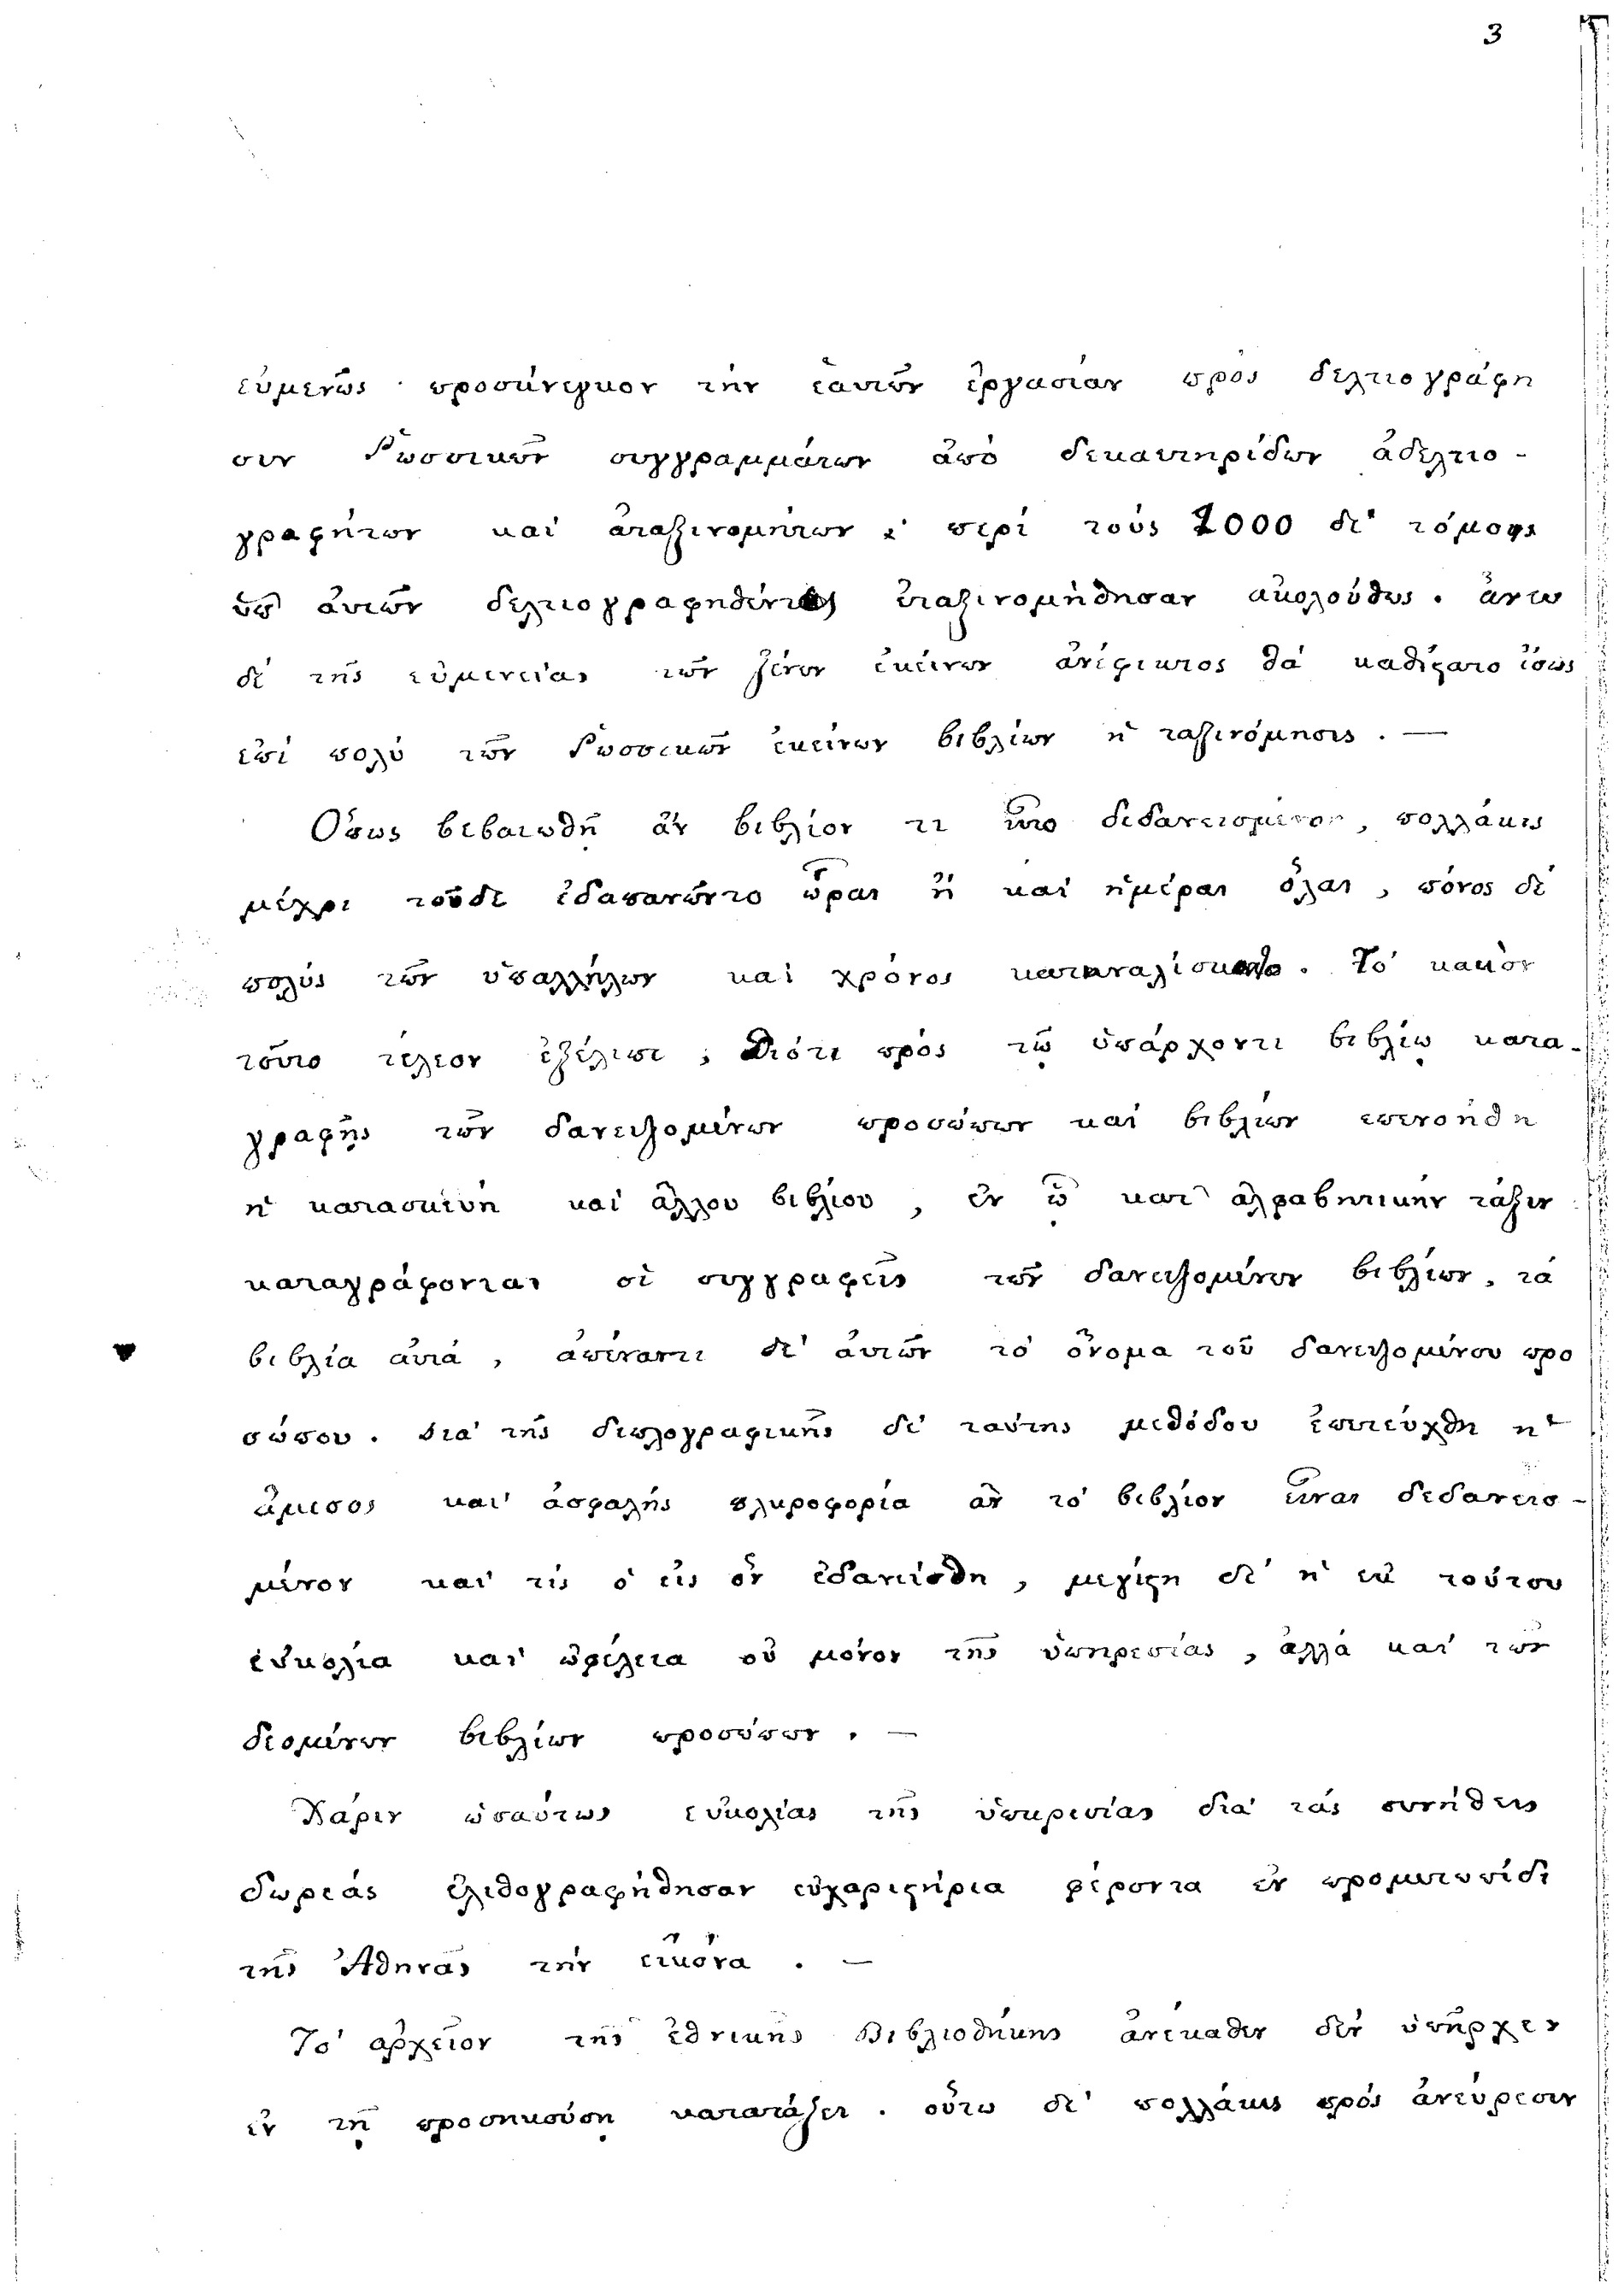 3
εὐμενῶς προσήνεγκον τὴν ἑαυτῶν ἐργασίαν πρὸς δελτιογράφη
σιν Ῥωσσικῶν συγγραμμάτων ἀπὸ δεκαετηρίδων ἀδελτιο-
γραφήτων καὶ ἀταξινομήτων, περὶ τοὺς 1000 δὲ τόμους
ὑπ' αὐτῶν δελτιογραφηθέντες ἐταξινομήθησαν ἀκολούθως. ἄνευ
δὲ τῆς εὐμενείας τῶν ξένων ἐκείνων ἀνέφικτος θὰ καθίστατο ἴσως
ἐπὶ πολὺ τῶν Ῥωσσικῶν ἐκείνων βιβλίων ἡ ταξινόμησις. —
Ὅπως βεβαιωθῇ ἂν βιβλίον τι ἦτο δεδανεισμένον, πολλάκις
μέχρι τοῦδε ἐδαπανῶντο ὧραι ἢ καὶ ἡμέραι ὅλαι, πόνος δὲ
πολὺς τῶν ὑπαλλήλων καὶ χρόνος κατηναλίσκετο. Τὸ κακὸν
τοῦτο τέλεον ἐξέλιπε, διότι πρὸς τῷ ὑπάρχοντι βιβλίῳ κατα-
γραφῆς τῶν δανειζομένων προσώπων καὶ βιβλίων ἐπενοήθη
ἡ κατασκευὴ καὶ ἄλλου βιβλίου, ἐν ᾧ κατ' ἀλφαβητικὴν τάξιν
καταγράφονται οἱ συγγραφεῖς τῶν δανειζομένων βιβλίων, τὰ
βιβλία αὐτά, ἀπέναντι δ' αὐτῶν τὸ ὄνομα τοῦ δανειζομένου προ
σώπου. Διὰ τῆς διπλογραφικῆς δὲ ταύτης μεθόδου ἐπετεύχθη ἡ
ἄμεσος καὶ ἀσφαλὴς πληροφορία ἂν τὸ βιβλίον εἶναι δεδανεισ-
μένον καὶ τίς ὁ εἰς ὃν ἐδανείσθη, μεγίστη δ' ἡ ἐκ τούτου
εὐκολία καὶ ὠφέλεια οὐ μόνον τῆς ὑπηρεσίας, ἀλλὰ καὶ τῶν
δεομένων βιβλίων προσώπων. —
Χάριν ὡσαύτως εὐκολίας τῆς ὑπηρεσίας διὰ τὰς συνήθεις
δωρεὰς ἐλιθογραφήθησαν εὐχαριστήρια φέροντα ἐν προμετωπίδι
τῆς Ἀθηνᾶς τὴν εἰκόνα. —
Τὸ ἀρχεῖον τῆς Ἐθνικῆς Βιβλιοθήκης ἀνέκαθεν δὲν ὑπῆρχεν
ἐν τῇ προσηκούσῃ κατατάξει. οὕτω δὲ πολλάκις πρὸς ἀνεύρεσιν